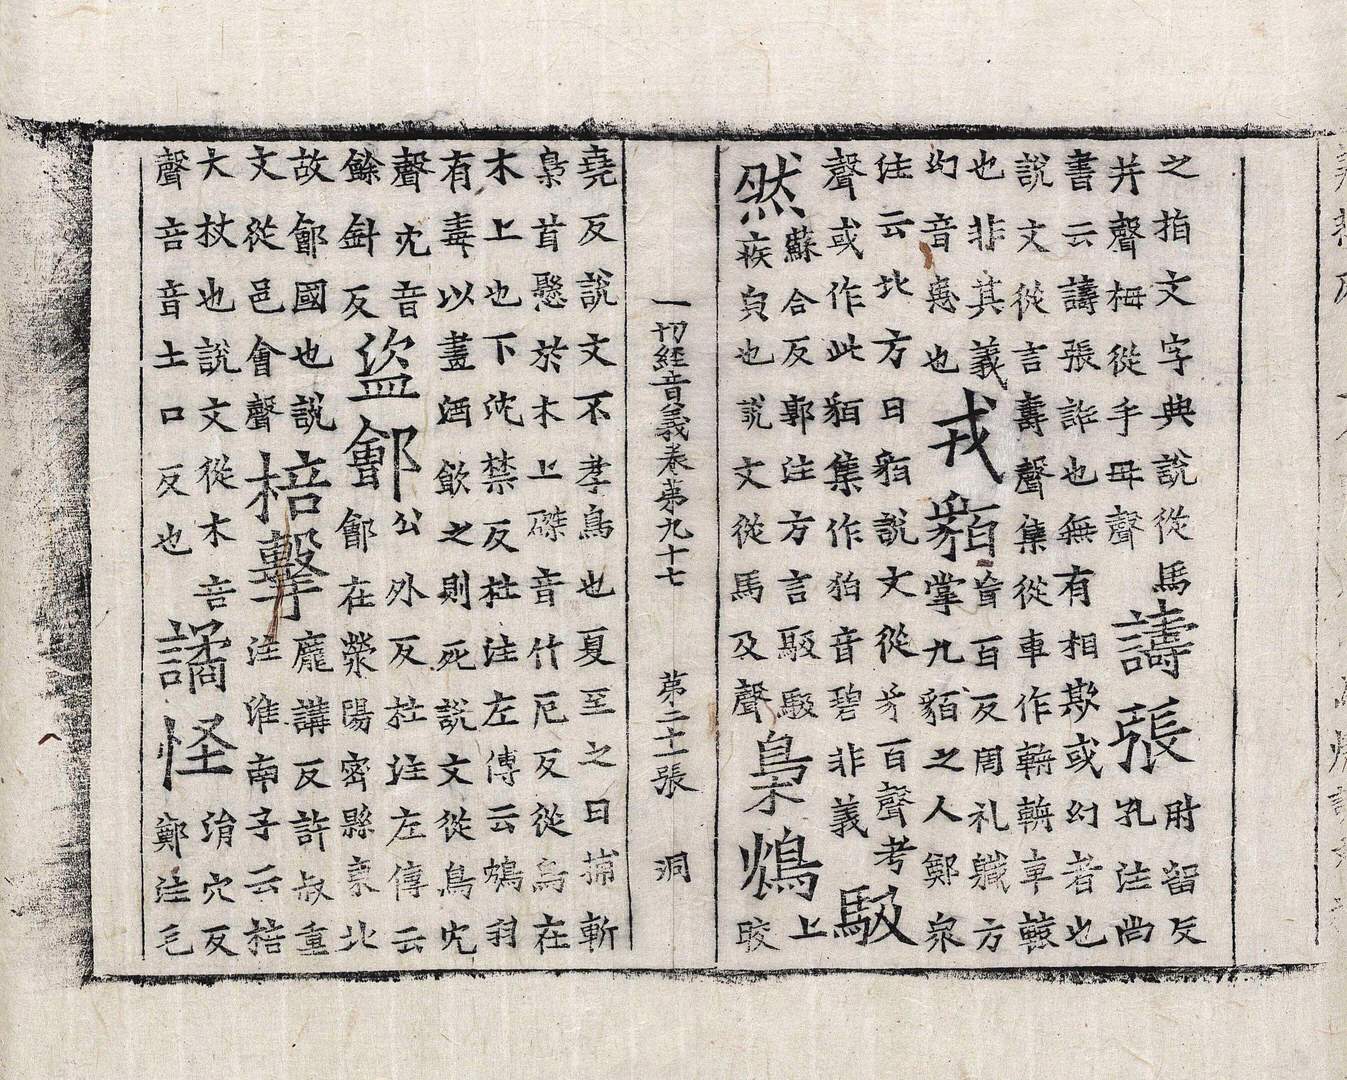 之指文字典說從馬
并聲栂從手毋聲
譸張
肘留反
孔注尚
書云譸張誑也無有相欺或幻者也
說文從言壽聲集從車作輈輈車轅
也非其義
幻音患也
戎貊
音百反周礼職方
掌九貊之人鄭衆
注云北方曰貊說文從豸百聲考
聲或作此貊集作狛音碧非義
馺
然
蘇合反郭注方言馺馺
疾皃也說文從馬及聲
梟鴆
上
晈
一切經音義卷第九十七 第二十一張 洞
堯反說文不孝鳥也夏至之日捕斬
梟首懸於木上磔音竹厄反從鳥在
木上也下沈禁反杜注左傳云鴆羽
有毒以畫酒飲之則死說文從鳥冘
聲冘音
餘針反
盜鄶
公外反杜注左傳云
鄶在滎陽密縣東北
故鄶國也說
文從邑會聲
棓擊
龐講反許叔重
注淮南子云棓
大杖也說文從木咅
聲咅音土口反也
譎恠
涓穴反
鄭注毛